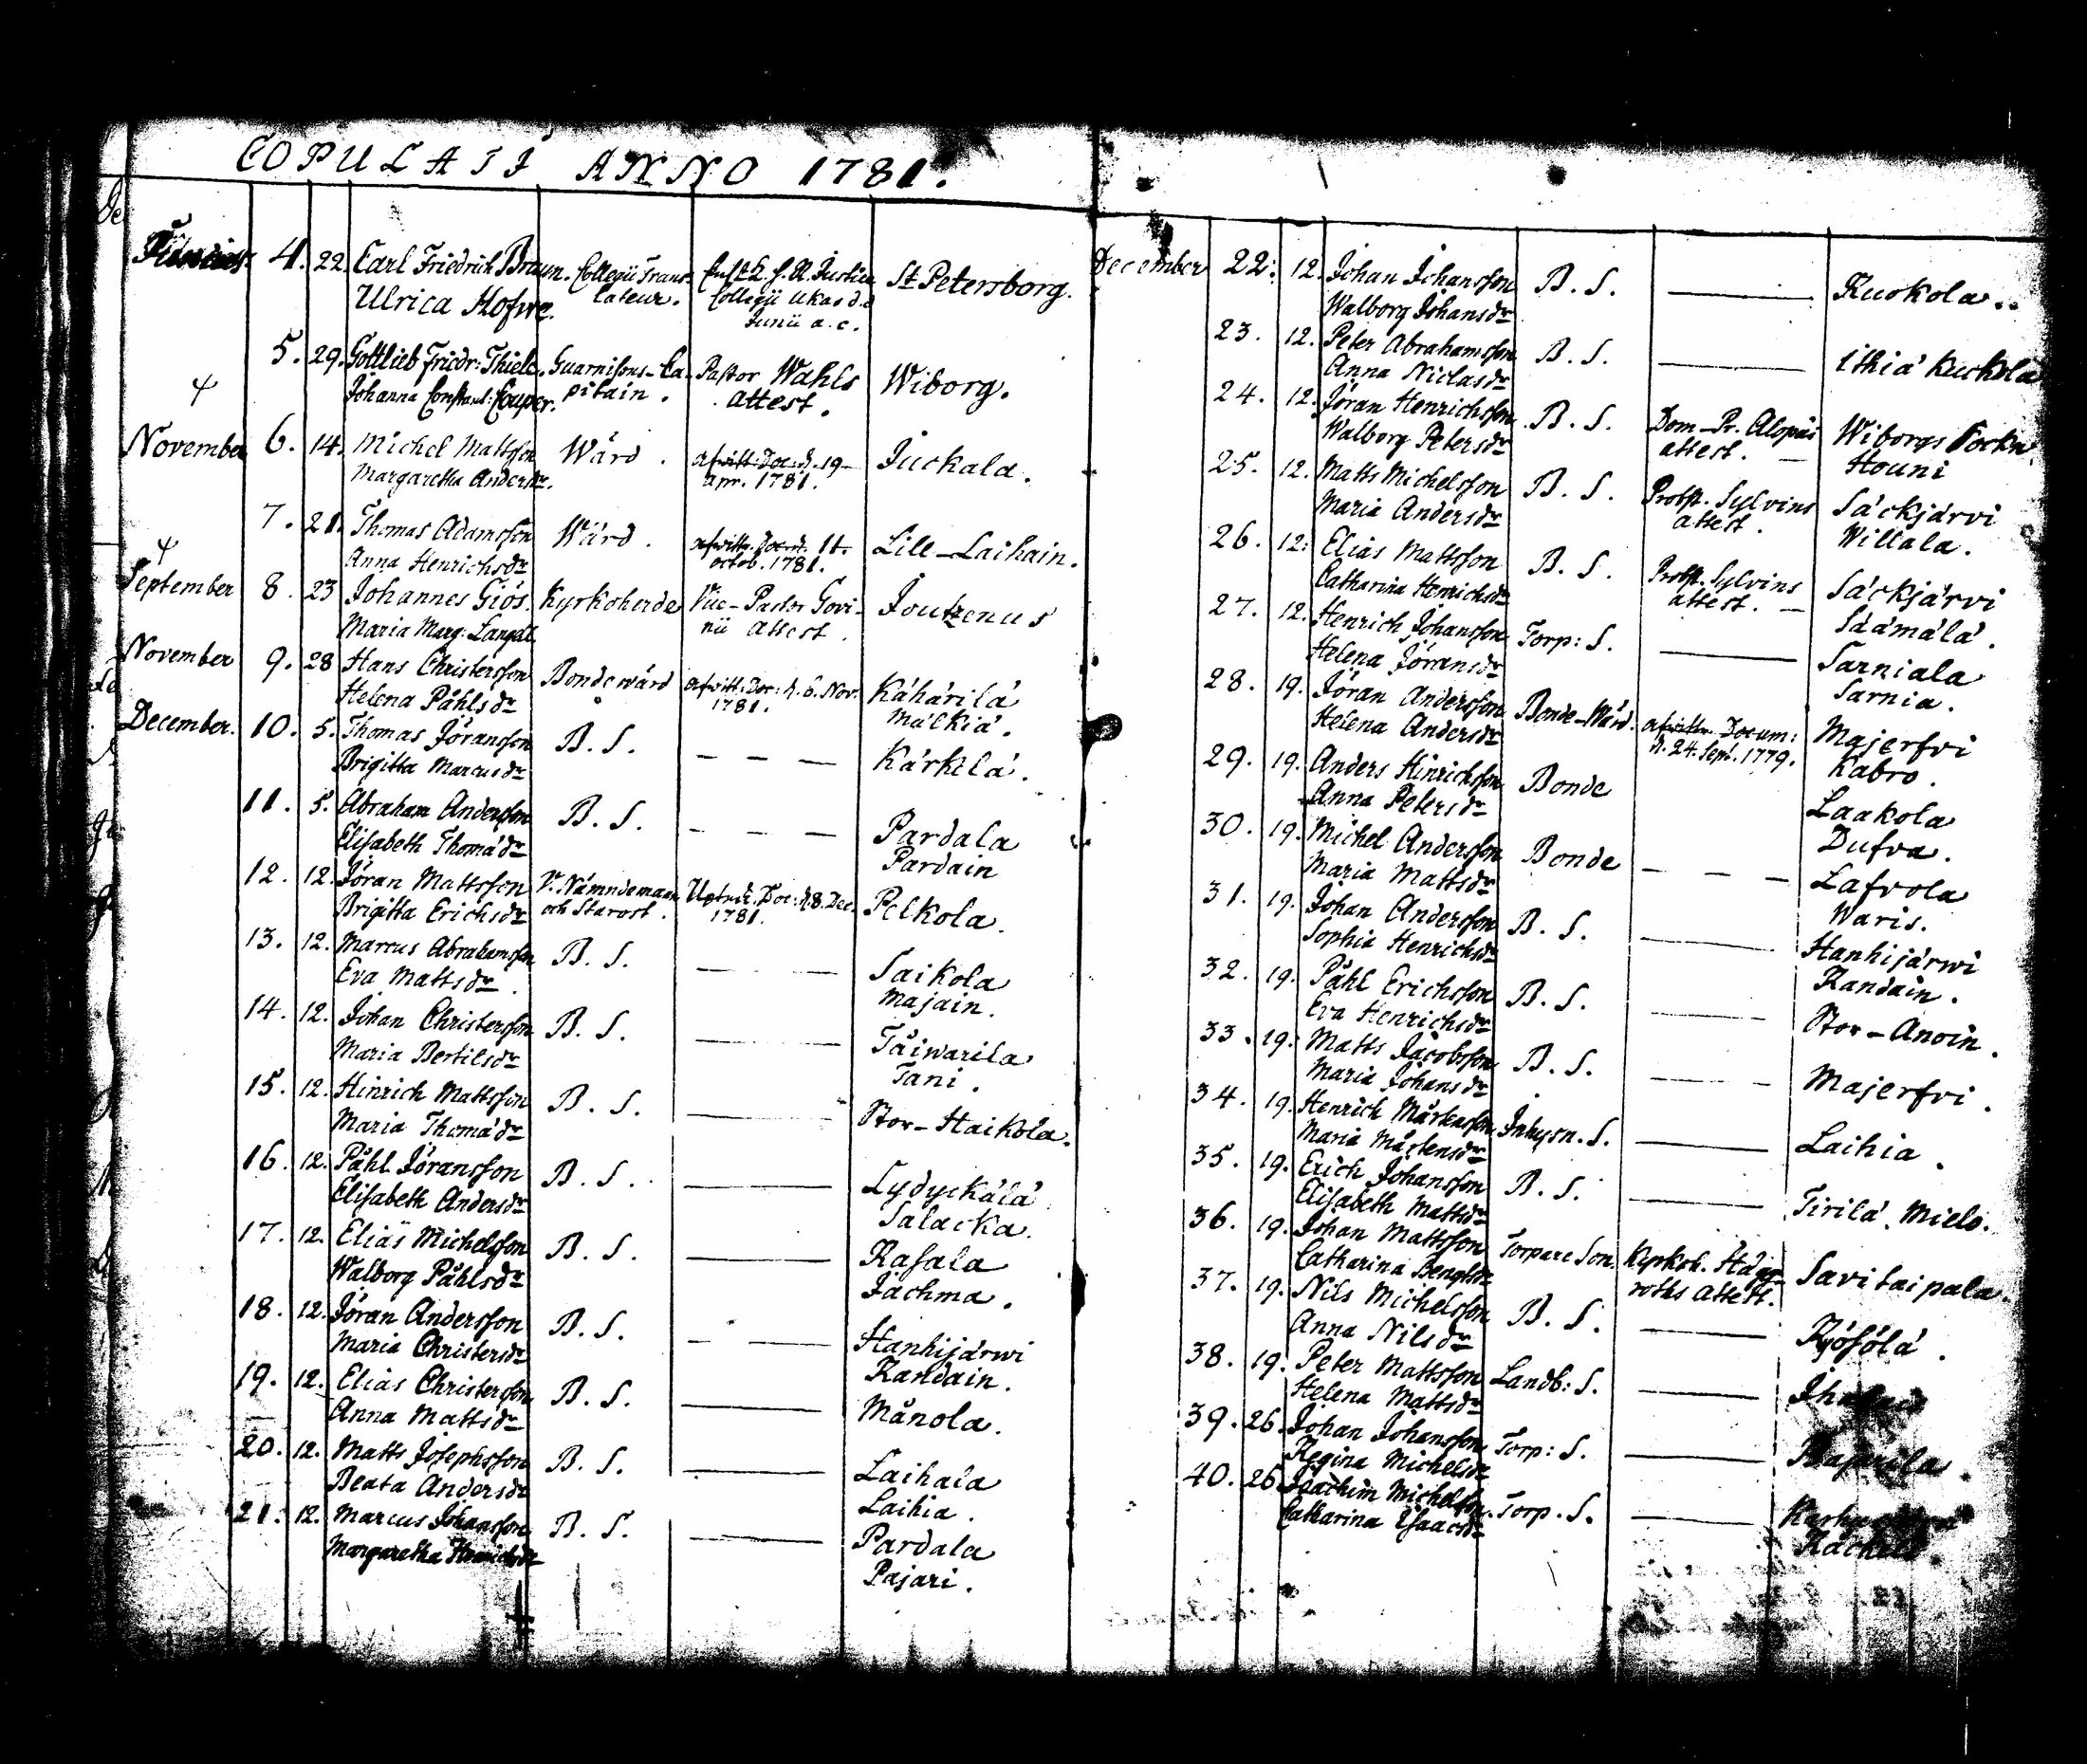 COPULATI ANNO 1781.
4. 22. Carl Friedrich Braun. Collegii Trans- Justice St Petersborg.
Ulrica Hofwe. lateur. Collegii Ukas d.d
Junii a. c.
5. 29. Gottlieb Friedr: Thiele. Guarnisons-Ca- Pastor Wahls Wiborg.
Johanna Constant: Couper. pitain. attest.
November 6. 14. Michel Mattsson Wärd. afwitt: Doc: d. 19 Juckala.
Margaretha Andersdr. apr. 1781.
7. 21. Thomas Adamsson Wärd. afwittr. Doc: d. 11. Lill-Laihain.
Anna Henrichsdr octob. 1781.
September 8. 23 Johannes Giös. Kyrkoherde Vice-Pastor Govi- Joutzenus
Maria Marg: Langel nii attest.
November 9. 28 Hans Christersson Bondewärd afwitt: Doc: d. 6. Nov. Kähärilä
Helena Påhlsdr 1781. Mälkiä.
December. 10. 5. Thomas Jöransson B. S. — — — Kärkilä.
Brigitta Marcusdr
11. 5. Abraham Andersson B. S. — — — Pardala
Elisabeth Thomædr Pardain
12. 12. Jöran Mattsson Nämndeman Doc: d. 8. Dec. Pelkola.
Brigitta Erichsdr och Starost. 1781.
13. 12. Marcus Abrahamsson B. S. — — Saikola
Eva Mattsdr Majain.
14. 12. Johan Christersson B. S. — Täiwarila
Maria Bertilsdr Tani.
15. 12. Hinrich Mattsson B. S. — Stor-Haikola.
Maria Thomædr
16. 12. Påhl Jöransson B. S. — Lydyckälä
Elisabeth Andersdr Salacka.
17. 12. Elias Michelsson B. S. — Rasala
Walborg Påhlsdr Jachma.
18. 12. Jöran Andersson B. S. — — Hanhijärwi
Maria Christersdr Kandain.
19. 12. Elias Christersson B. S. — Månola.
Anna Mattsdr
20. 12. Matts Josephsson B. S. — Laihala
Beata Andersdr Laihia.
21. 12. Marcus Johansson B. S. — Pardala
Margaretha Henrichsdr Pajari.
December 22. 12. Johan Johansson B. S. — Kuokola..
Walborg Johansdr
23. 12. Peter Abrahamsson B. S. — Ithiä Kuckola
Anna Niclasdr
24. 12. Jöran Henrichsson B. S. Dom-Pr. Alopæi Wiborgs Sockn
Walborg Petersdr attest. — Houni
25. 12. Matts Michelsson B. S. Probst. Sylvins Säckjärvi
Maria Andersdr attest. Willala.
26. 12: Elias Mattsson B. S. Probst. Sylvins Säckjärvi
Catharina Henrichsdr attest. — Säämälä.
27. 12. Henrich Johansson Torp: S. — Sarniala
Helena Jöransdr Sarnia.
28. 19. Jöran Andersson Bonde-Wärd. afwittr. Docum: Majerfvi
Helena Andersdr d. 24. Sept. 1779. Kabro.
29. 19. Anders Hinrichsson Bonde Laakola
Anna Petersdr Dufva.
30. 19. Michel Andersson Bonde — — — Lafvola
Maria Mattsdr Waris.
31. 19. Johan Andersson B. S. — Hanhijärwi
Sophia Henrichsdr Kandain.
32. 19. Påhl Erichsson B. S. — Stor-Anoin.
Eva Henrichsdr
33. 19. Matts Jacobsson B. S. — — Majerfvi.
Maria Johansdr
34. 19. Henrich Mårtensson Inhysn. S. — Laihia.
Maria Mårtensdr
35. 19. Erich Johansson B. S. — Tirilä. Mielo.
Elisabeth Mattsdr
36. 19. Johan Mattsson Torpare Son. Kyrkoh. Häg- Savitaipala.
Catharina Bengtsdr roths attest.
37. 19. Nils Michelsson B. S. —
Anna Nilsdr
38. 19. Peter Mattsson Landb: S. —
Helena Mattsdr
39. 26. Johan Johansson Torp: S. — Rajarila.
Regina Michelsdr
40. 26. Joachim Michelsson Torp. S. —
Catharina Isaacsdr